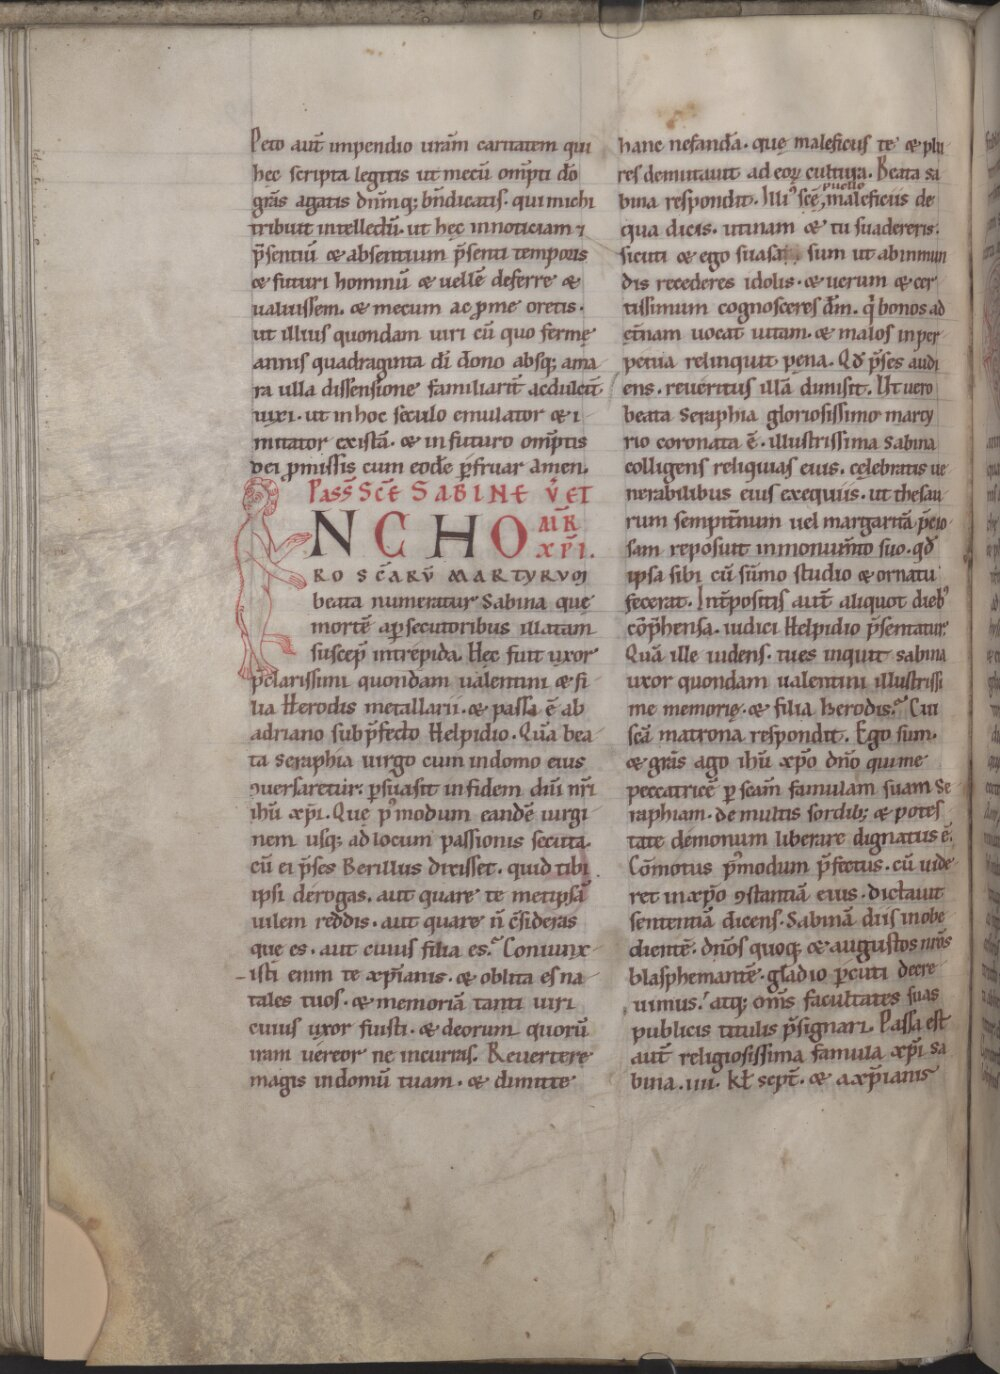 Peto aut̄ impendio urām caritatem qui
hec scripta legitis ut mecū om̄pti dō
grās agatis dn̄mq; bn̄dicatis. qui michi
tribuit intellectū. ut hec in noticiam ⁊
p̄sentiū & absentium p̄senti temporis
& futuri hominū & uellē deferre &
ualuissem. & mecum ac p̱ me oretis.
ut illius quondam uiri cū quo fermę
annis quadraginta dī dono absq; ama
ra ulla dissensione familiarit̄ ac dulcit̄
uixi. ut in hoc seculo emulator & i
mitator existā. & in futuro om̄ptis
dei p̱missis cum eodē p̱fruar amen.
Pass̄ Scē SABINE V̄ ET
IN CHO MR̄
XP̄I.
RO SC̄ARV̄ MARTYRVM
beata numeratur Sabina que
mortē a p̱secutoribus illatam
suscep̄ intrepida. Hęc fuit uxor
p̄clarissimi quondam ualentini & fi
lia Herodis metallarii. & passa ē ab
adriano sub p̄fecto Helpidio. Quā bea
ta Seraphia uirgo cum in domo eius
ꝯuersaretur: p̱suasit in fidem dn̄i nr̄i
ihū xp̄i. Que p̱ modum eandē uirgi
nem usq; ad locum passionis secuta.
cū ei p̄ses Berillus dixisset. quid tibi
ipsi derogas. aut quare te metipsā
uilem reddis. aut quare n̄ c̄sideras
que es. aut cuius filia es. Coniunx
isti enim te xp̄ianis. & oblita es na
tales tuos. & memoriā tanti uiri
cuius uxor fuisti. & deorum quorū
iram uereor ne incurras. Reuertere
magis in domū tuam. & dimitte
hanc nefandā. quę maleficus te & plu
res demutauit ad eoꝝ cultura. Beata sa
bina respondit. Illi' scē puelle maleficiis de
qua dicis. utinam & tu suadereris.
sicuti & ego suasa sum ut ab inmun
dis recederes idolis. & uerum & cer
tissimum cognosceres dm̄. q̇ bonos ad
et̄nam uocat uitam. & malos in per
petua relinquit pena. Qd̄ p̄ses audi
ens. reueritus illā dimisit. Ut uero
beata Seraphia gloriosissimo marty
rio coronata ē. illustrissima Sabina
colligens reliquias eius. cęlebratis ue
nerabilibus eius exequiis. ut thesau
rum sempit̄num uel margaritā p̄cio
sam reposuit in monum̄to suo. qd̄
ipsa sibi cū sūmo studio & ornatu
fecerat. Int̄positis aut̄ aliquot dieb'
cōp̄hensa. iudici Helpidio p̄sentatur.
Quā ille uidens. tues inquit sabina
uxor quondam ualentini illustrissi
me memorię. & filia herodis? Cui
scā matrona respondit. Ego sum.
& grās ago ihū xp̄o dn̄o qui me
peccatricē p̱ scam̄ famulam suam Se
raphiam. de multis sordib; & potes
tate demonum liberare dignatus ē.
Cōmotus p̱ modum p̄fectus. cū uide
ret in xp̄o ꝯstantiā eius. dictauit
sententiā dicens. Sabinā diis inobe
dientē. dn̄os quoq; & augustos nr̄os
blasphemantē. gladio p̱cuti decre
uimus. atq; om̄s facultates suas
publicis titulis p̄signari. Passa est
aut̄ religiosissima famula xp̄i Sa
bina. iiii. kł sept̄. & a xp̄ianis